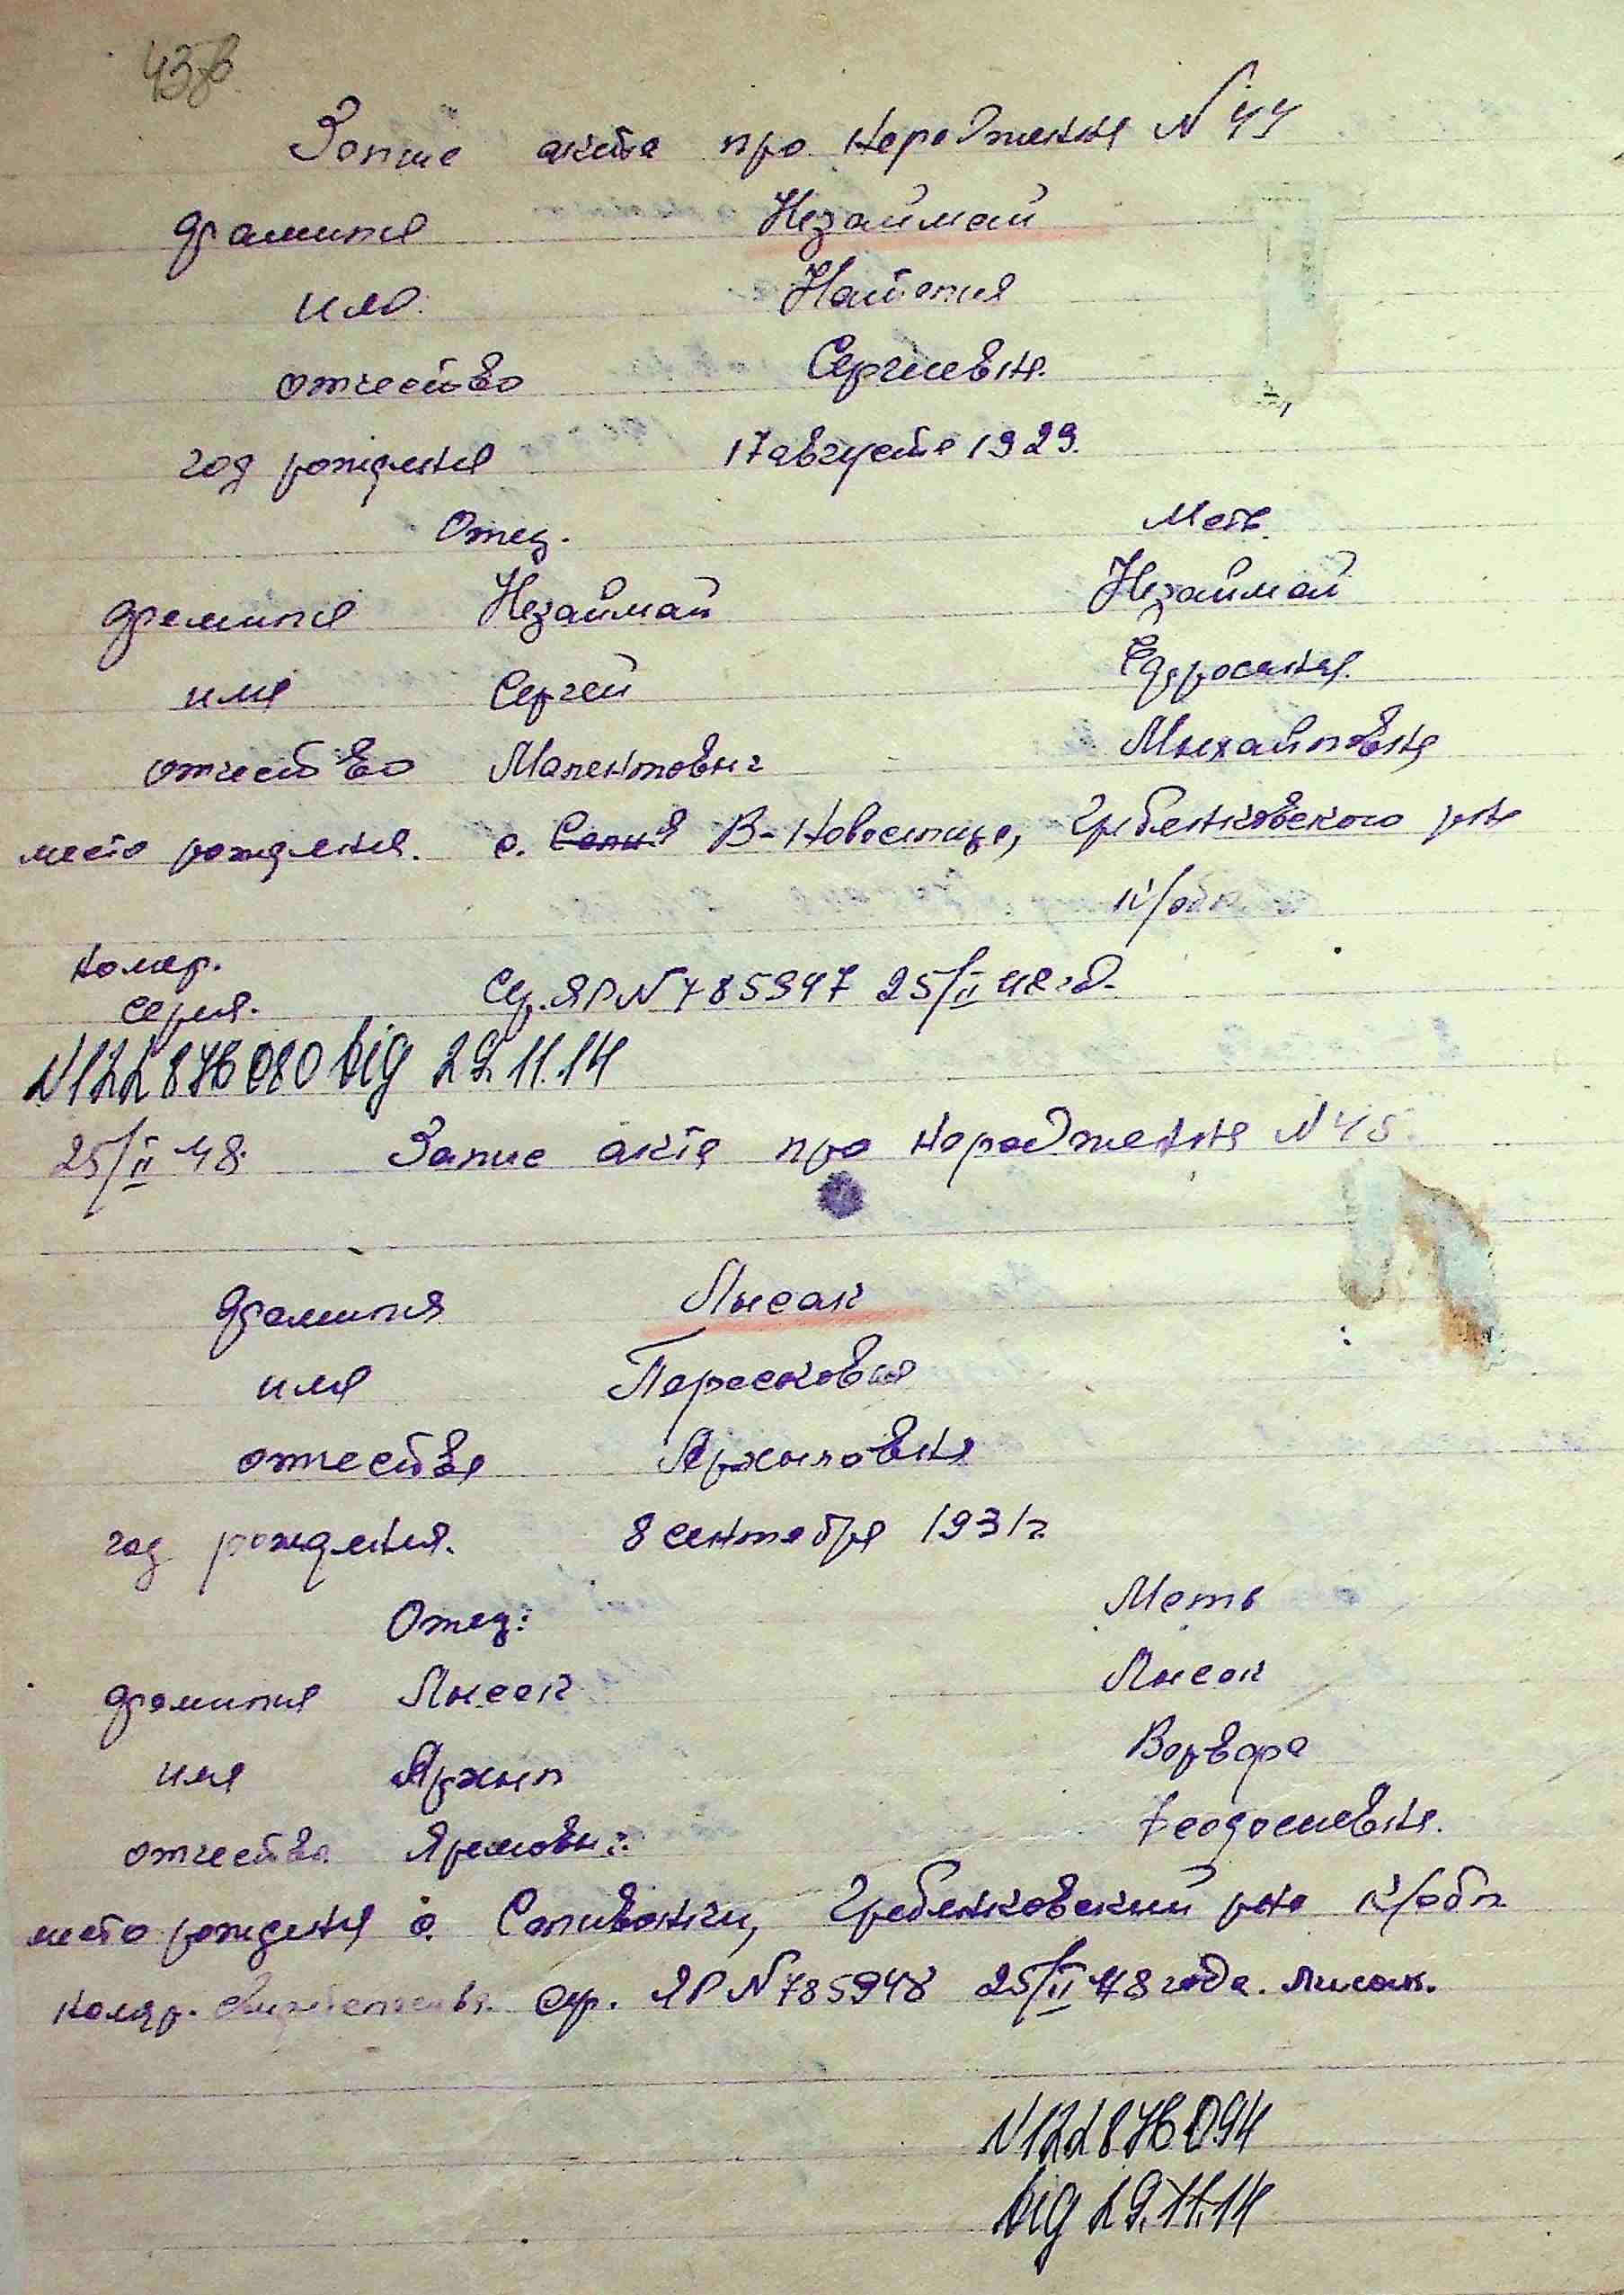 43зв
Запис акта про народження N 44
фамилия Незаймай
имя Наталия
отчество Сергиевна.
год рождения 17 августа 1929.
Отец. Мать.
фамилия Незаймай Незаймай
имя Сергей Ефросиния.
отчество Михайловна
место рождения. с. В-Половецке, Гребенковского р-на
К/обл.
номер.
серия. Сер. ЯР N 785947 25/II 48 год.
N 122876080 від 29.11.14
25/II 48. Запис акта про народження N 45.
фамилия Лысак
имя Парасковия
отчества Архыповна
год рождения. 8 сентября 1931 г.
Отец: Мать
фамилия Лысак Лысак
имя Архып Варвара
отчество Яремовыч. Феодосиевна.
место рождения с. Соливонки, Гребенковский р-на К/обл.
номер. свидетельства. Сер. ЯР N 785948 25/II 48 года. Лисак.
N 122876094
від 29.11.14